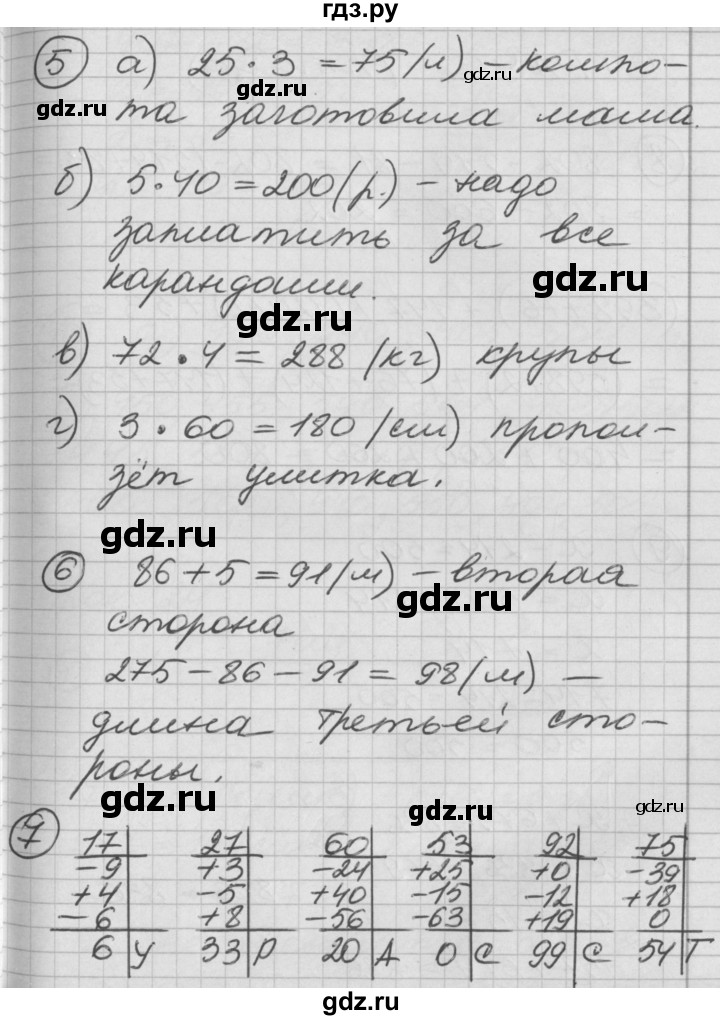 гдз.ру
5 а) 25 · 3 = 75 (л) – компо-
gdz.ru
gdz.ru
gdz.ru
та заготовила мама.
б) 5 · 40 = 200 (р.) – надо
запиатить за все
карандаши.
gdz.ru
gdz.ru
в) 72 · 4 = 288 (кг) крупы
г) 3 · 60 = 180 (см) пропол-
зёт улитка.
gdz.ru
6 86 + 5 = 91 (м) – вторая
gdz.ru
сторона
275 – 86 – 91 = 98 (м) –
длина третьей сто-
роны.
gdz.ru
gdz.ru
gdz.ru
7 17 27 60 53 92 75
–9 +3 –24 +25 +0 –39
+4 –5 +40 –15 –12 +18
–6 +8 –56 –63 +19 0
6 У 33 Р 20 А 0 С 99 С 54 Т
gdz.ru